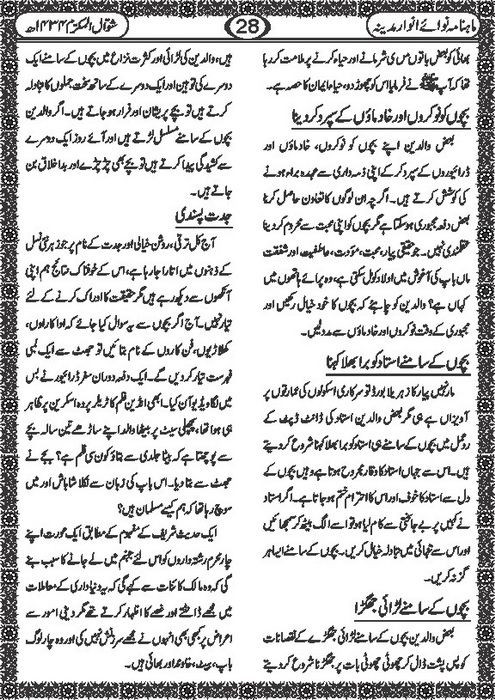 ماہنامہ نوائے انوار مدینہ
28
شوال المکرّم ۱۴۳۴ھ
بھائی کو بعض باتوں میں شرمانے اور حیاء کرنے پر ملامت کر رہا
تھا کہ آپ ﷺ نے فرمایا اس کو چھوڑ دو، حیاء ایمان کا حصہ ہے۔
بچوں کو نوکروں اور خادماؤں کے سپرد کر دینا
بعض والدین اپنے بچوں کو نوکروں، خادماؤں اور
ڈرائیوروں کے سپرد کر کے اپنی ذمہ داری سے عہدہ براء ہونے
کی کوشش کرتے ہیں۔ اگر چہ ان لوگوں کا تعاون حاصل کرنا
بعض دفعہ مجبوری ہو سکتا ہے مگر بچوں کو اپنی محبت سے محروم کر دینا
عقلمندی نہیں۔ جو حقیقی پیار، محبت، مؤدت، عاطفیت اور شفقت
ماں باپ کی آغوش میں اولاد کو مل سکتی ہے، وہ پرائے ہاتھوں میں
کہاں ہے؟ والدین کو چاہئے کہ بچوں کا خود خیال رکھیں اور
مجبوری کے وقت نوکروں اور خادماؤں سے مدد لیں۔
بچوں کے سامنے استاد کو برا بھلا کہنا
مار نہیں پیار کا زہریلا بورڈ تو سرکاری اسکولوں کی عمارتوں پر
آویزاں ہے ہی مگر بعض والدین استاد کی ڈانٹ ڈپٹ کے
ردعمل میں بچوں کے سامنے ہی استاد کو برا بھلا کہنا شروع کر دیتے
ہیں۔ اس سے جہاں استاد کا وقار مجروح ہوتا ہے وہیں بچوں کے
دل سے استاد کا خوف اور اس کا احترام ختم ہو جاتا ہے۔ اگر استاد
نے کہیں پر بے جا سختی سے کام لیا ہو تو اسے الگ بیٹھ کر سمجھائیں
اور اس سے تنہائی میں تبادلہ خیال کریں۔ بچوں کے سامنے ایسا ہر
گز نہ کریں۔
بچوں کے سامنے لڑائی جھگڑا
بعض والدین بچوں کے سامنے لڑائی جھگڑے کے نقصانات
کو پس پشت ڈال کر چھوٹی چھوٹی بات پر جھگڑنا شروع کر دیتے
ہیں، والدین کی لڑائی اور کثرت نزاع میں بچے جب ایک
دوسرے کی توہین اور ایک دوسرے کے ساتھ سخت جملوں کا تبادلہ
کرتے ہیں تو بچے پریشان اور فرار ہو جاتے ہیں۔ اگر والدین
بچوں کے سامنے مسلسل لڑتے ہیں اور آئے روز ایک دوسرے
سے کشیدگی پیدا کرتے ہیں تو بچے بھی چڑچڑے اور بداخلاق بن
جاتے ہیں۔
جدت پسندی
آج کل ترقی، روشن خیالی اور جدت کے نام پر جو زہر نئی نسل
کے ذہنوں میں اتارا جا رہا ہے، اس کے خوفناک نتائج ہم اپنی
آنکھوں سے دیکھ رہے ہیں مگر حقیقت کا ادراک کرنے کے لئے
تیار نہیں۔ آج اگر بچوں سے یہ سوال کیا جائے کہ اداکاراوں،
کھلاڑیوں، فن کاروں کے نام بتائیں تو جھٹ سے ایک لمبی
فہرست تیار کر دیں گے۔ ایک دفعہ دوران سفر ڈرائیور نے بس
میں لگا ویڈیو آن کیا۔ ابھی انڈین فلم کا ٹریلر پردہ اسکرین پر ظاہر
ہی ہوا تھا، پچھلی سیٹ پر بیٹھا والد اپنے ساڑھے تین سالہ بچے
سے پوچھتا ہے کہ بیٹا جلدی سے بتاؤ کون سی فلم ہے؟ بچے نے
جھٹ سے بتا دیا۔ اس باپ کی زبان سے نکلا شاباش اور میں
سوچ رہا تھا کہ ہم کیسے مسلمان ہیں؟
ایک حدیث شریف کے مفہوم کے مطابق ایک عورت اپنے
چار محرم رشتہ داروں کو اس لئے جہنم میں لے جانے کا سبب بنے
گی کہ وہ مالک کائنات سے کہے گی کہ یہ دنیاداری کے معاملات
میں مجھے ڈانٹتے اور غصے کا اظہار کرتے تھے مگر دینی امور سے
اعراض پر کبھی بھی انہوں نے مجھے سرزنش نہیں کی اور وہ چار لوگ
باپ، بیٹے، خاوند اور بھائی ہیں۔